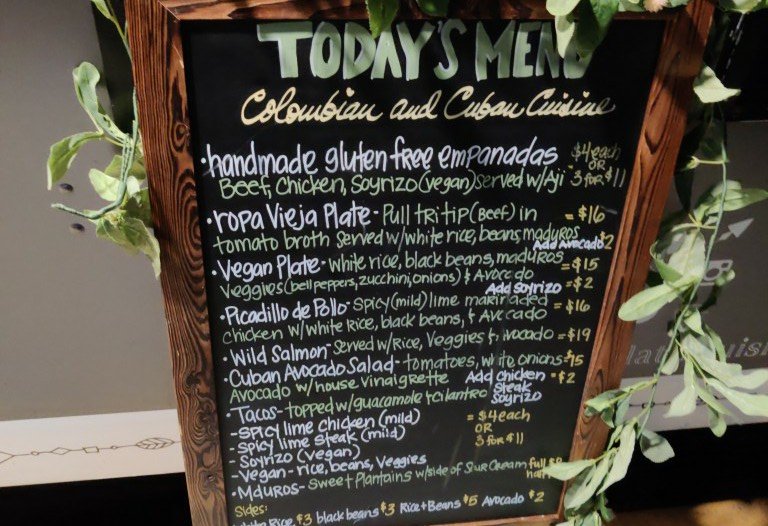 TODAY'S MENU
Colombian and Cuban Cuisine
• handmade gluten free empanadas $4 each
OR
Beef, Chicken, Soyrizo (vegan) served w/Aji 3 for $11
• ropa Vieja Plate - Pull tri tip (Beef) in = $16
tomato broth served w/white rice, beans, maduros
Add Avocado $2
• Vegan Plate - white rice, black beans, maduros = $15
Veggies (bell peppers, zucchini, onions) & Avocado
Add soyrizo = $2
• Picadillo de Pollo - spicy (mild) lime marinaded = $16
chicken w/white Rice, black beans, & Avocado
• Wild Salmon - served w/Rice, Veggies & Avocado = $19
• Cuban Avocado Salad - tomatoes, white onions = $15
Avocado w/house vinaigrette Add chicken = $2
steak
soyrizo
• Tacos - topped w/guacamole & cilantro
- spicy lime chicken (mild) = $4 each
- spicy lime steak (mild) OR
- Soyrizo (vegan) 3 for $11
- Vegan - rice, beans, Veggies
• Mduros - Sweet Plantains w/side of Sour Cream full
Sides:
Rice $3 black beans $3 Rice + Beans $5 Avocado $2